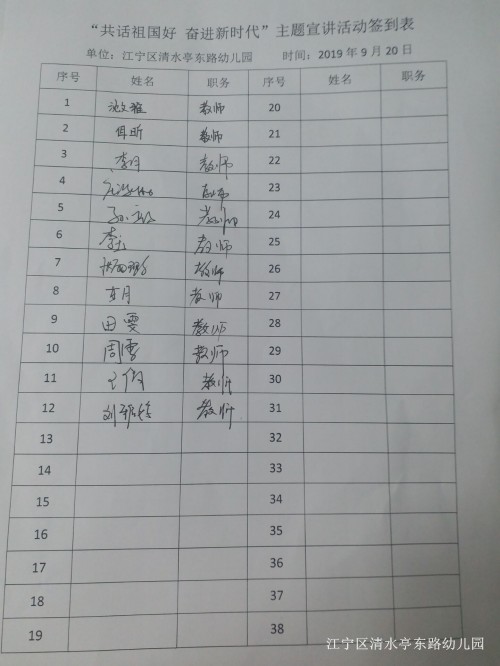 “共话祖国好 奋进新时代”主题宣讲活动签到表
单位：江宁区清水亭东路幼儿园 时间：2019年9月20日
序号 姓名 职务 序号 姓名 职务
1 教师 20
2 教师 21
3 李月 教师 22
4 教师 23
5 教师 24
6 教师 25
7 教师 26
8 教师 27
9 田雯 教师 28
10 周雪 教师 29
11 教师 30
12 教师 31
13 32
14 33
15 34
16 35
17 36
18 37
19 38
江宁区清水亭东路幼儿园